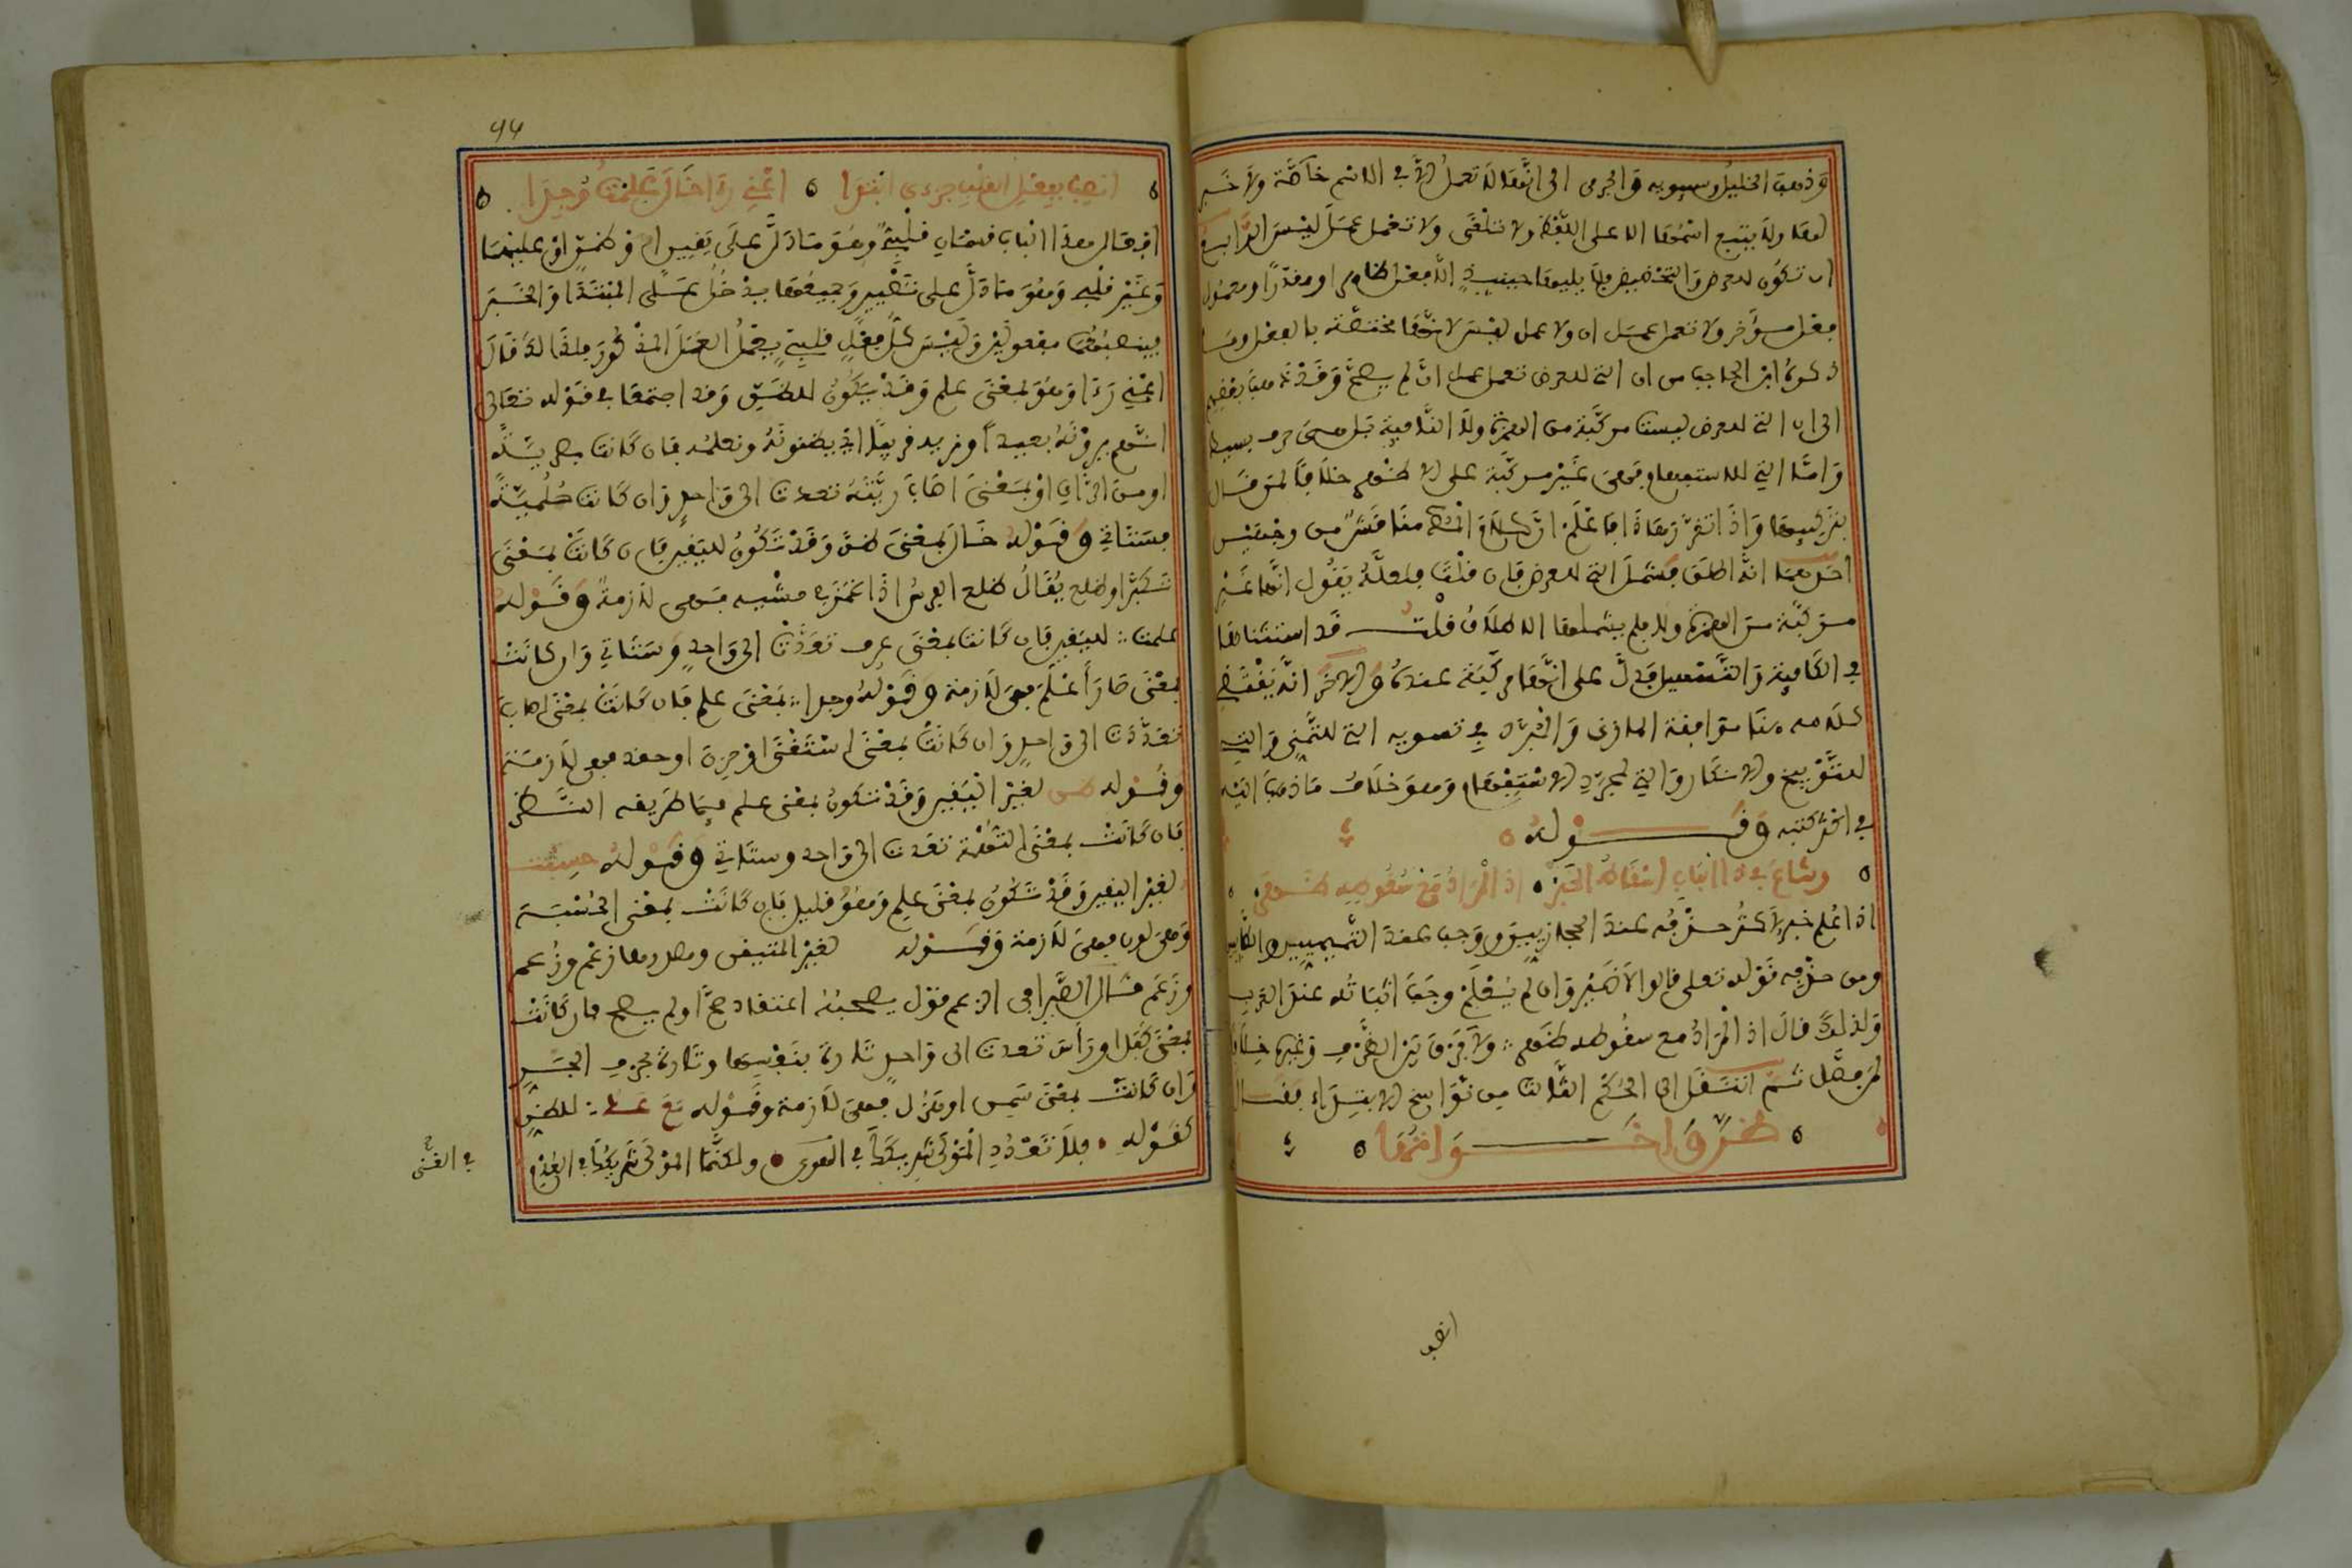 وذهب الخليل وسيبويه والجرمي الى انها لا تعمل الا في الاسم خاصة ولا خبر
لها ولا يتبع اسمها الا على اللفظ ولا تلغى ولا تعمل عمل ليس الرابع
ان تكون للعرض والتحضيض فلا يليها حينئذ الا فعل ظاهر او مقدر او معمول
فعل مؤخر ولا تعمل عمل ان ولا عمل ليس لانها مختصة بالفعل وما
ذكره ابن الحاجب من ان التي للعرض تعمل عمل ان لم يصح وقد ذهب بعضهم
الى ان التي للعرض ليست مركبة من الهمزة ولا النافية بل هي حرف بسيط
واما التي للاستفتاح فهي غير مركبة على الاظهر خلافا لمن قال
بتركيبها واذا تقرر هذا فاعلم ان كلام الناظم هنا منتقد من وجهين
احدهما انه اطلق فشمل التي للعرض فان قلت فلعله يقول انها غير
مركبة من الهمزة ولا فلم يشملها الاطلاق قلت قد استثناها
في الكافية والتسهيل فدل على انها مركبة عنده والاخر انه يقتضي
كلامه هنا موافقة المازني والمبرد في تسويه التي للتمني والتي
للتوبيخ والانكار والتي لمجرد الاستفهام وهو خلاف ما ذهب اليه
في اكثر كتبه وقوله
وشاع في ذا الباب اسقاط الخبر اذا المراد مع سقوطه ظهر
اذا علم خبر لا كثر حذفه عند الحجازيين ووجب عند التميميين والطائيين
ومن حذفه قوله تعلى قالوا لا ضير وان لم يعلم وجب اثباته عند العرب
ولذلك قال اذا المراد مع سقوطه ظهر ولا فرق بين الظرف وغيره خلافا
لمن فصل ثم انتقل الى الحكم الثالث من نواسخ الابتداء فقال
ظن واخواتها
انصب
انصب بفعل القلب جزءي ابتدا اعني رءا خال علمت وجدا
افعال هذا الباب قسمان قلبية وهو ما دل على يقين او ظن او عليهما
وغير قلبي وهو ما دل على تصيير وجميعها يدخل على المبتدا والخبر
فينصبهما مفعولين وليس كل فعل قلبي يعمل العمل المذكور فلذلك قال
اعني رءا وهو بمعنى علم وقد يكون للظن وقد اجتمعا في قوله تعالى
انهم يرونه بعيدا ونريه قريبا اي يظنونه ونعلمه فان كانت بصرية
او من الراي او بمعنى اصاب ريته تعدت الى واحد وان كانت حلمية
فستاتي وقوله خال بمعنى ظن وقد تكون لليقين فان كانت بمعنى
تكبر او ظلع يقال ظلع الفرس اذا غمز في مشيه فهي لازمة وقوله
علمت لليقين فان كانت بمعنى عرف تعدت الى واحد وستاتي وان كانت
بمعنى صار أعلم فهي لازمة وقوله وجدا بمعنى علم فان كانت بمعنى اصاب
تعدت الى واحد وان كانت بمعنى استغنى او حزن او حقد فهي لازمة
وقوله ظن لغير اليقين وقد تكون بمعنى علم فيما طريقه النظر
فان كانت بمعنى التهمة تعدت الى واحد وستاتي وقوله حسبت
لغير اليقين وقد تكون بمعنى علم وهو قليل فان كانت بمعنى الحسبة
وهي لون فهي لازمة وقوله لغير المتيقن ومصدرها زعم وزعم
وزعم قال السيرافي الزعم قول يصحبه اعتقاد صح او لم يصح فان كانت
بمعنى كفل او رأس تعدت الى واحد تارة بنفسها وتارة بحرف الجر
وان كانت بمعنى سمن او هزل فهي لازمة وقوله مع عد للظن
كقوله فلا تعدد المولى شريكك في الغنى ولكنما المولى شريكك في العدم
في الغنى